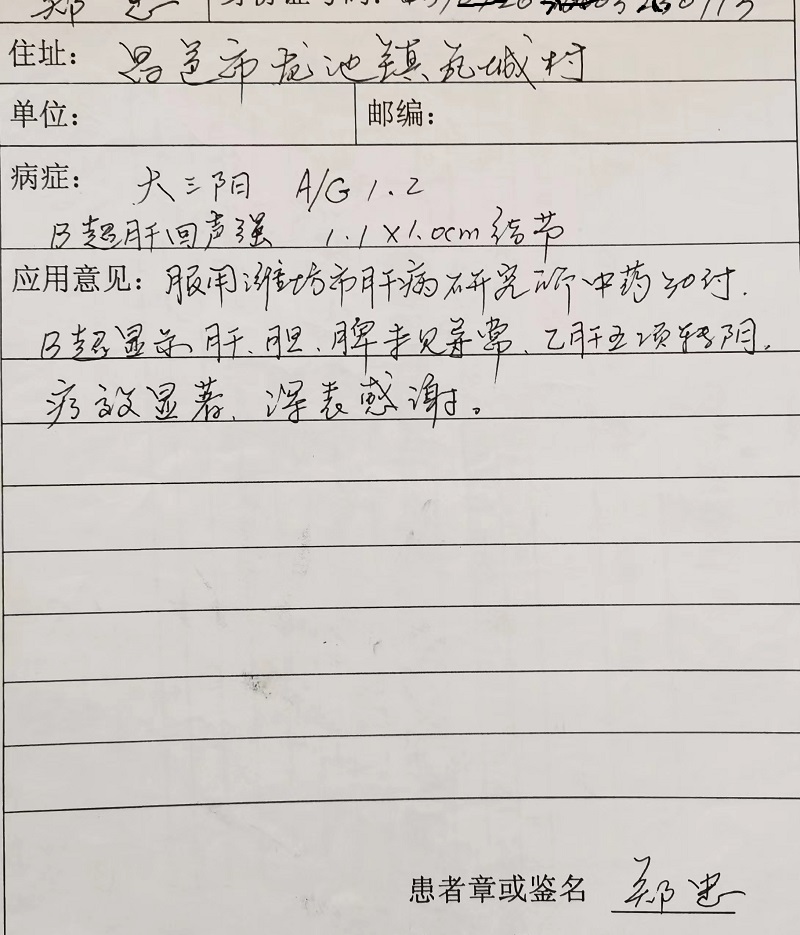 郑忠
住址：昌邑市龙池镇瓦城村
单位： 邮编：
病症：大三阳 A/G 1.2
B超肝回声强 1.1×1.0cm结节
应用意见：服用潍坊市肝病研究所中药30付.
B超显示肝、胆、脾未见异常、乙肝五项转阴.
疗效显著、深表感谢。
患者章或鉴名 郑忠